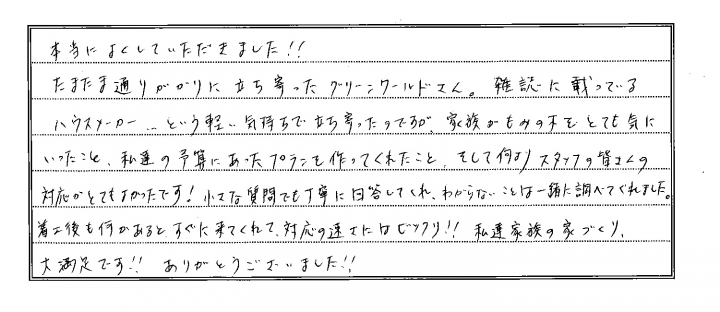 本当によくしていただきました!!
たまたま通りがかりに立ち寄ったグリーンワールドさん。雑誌に載っている
ハウスメーカー…という軽い気持ちで立ち寄ったのですが、家族がもみの木をとても気に
いったこと、私達の予算にあったプランを作ってくれたこと、そして何よりスタッフの皆さんの
対応がとてもよかったです!小さな質問でも丁寧に回答してくれ、わからないことは一緒に調べてくれました。
着工後も何かあるとすぐに来てくれて、対応の速さにはビックリ!!私達家族の家づくり、
大満足です!!ありがとうございました!!